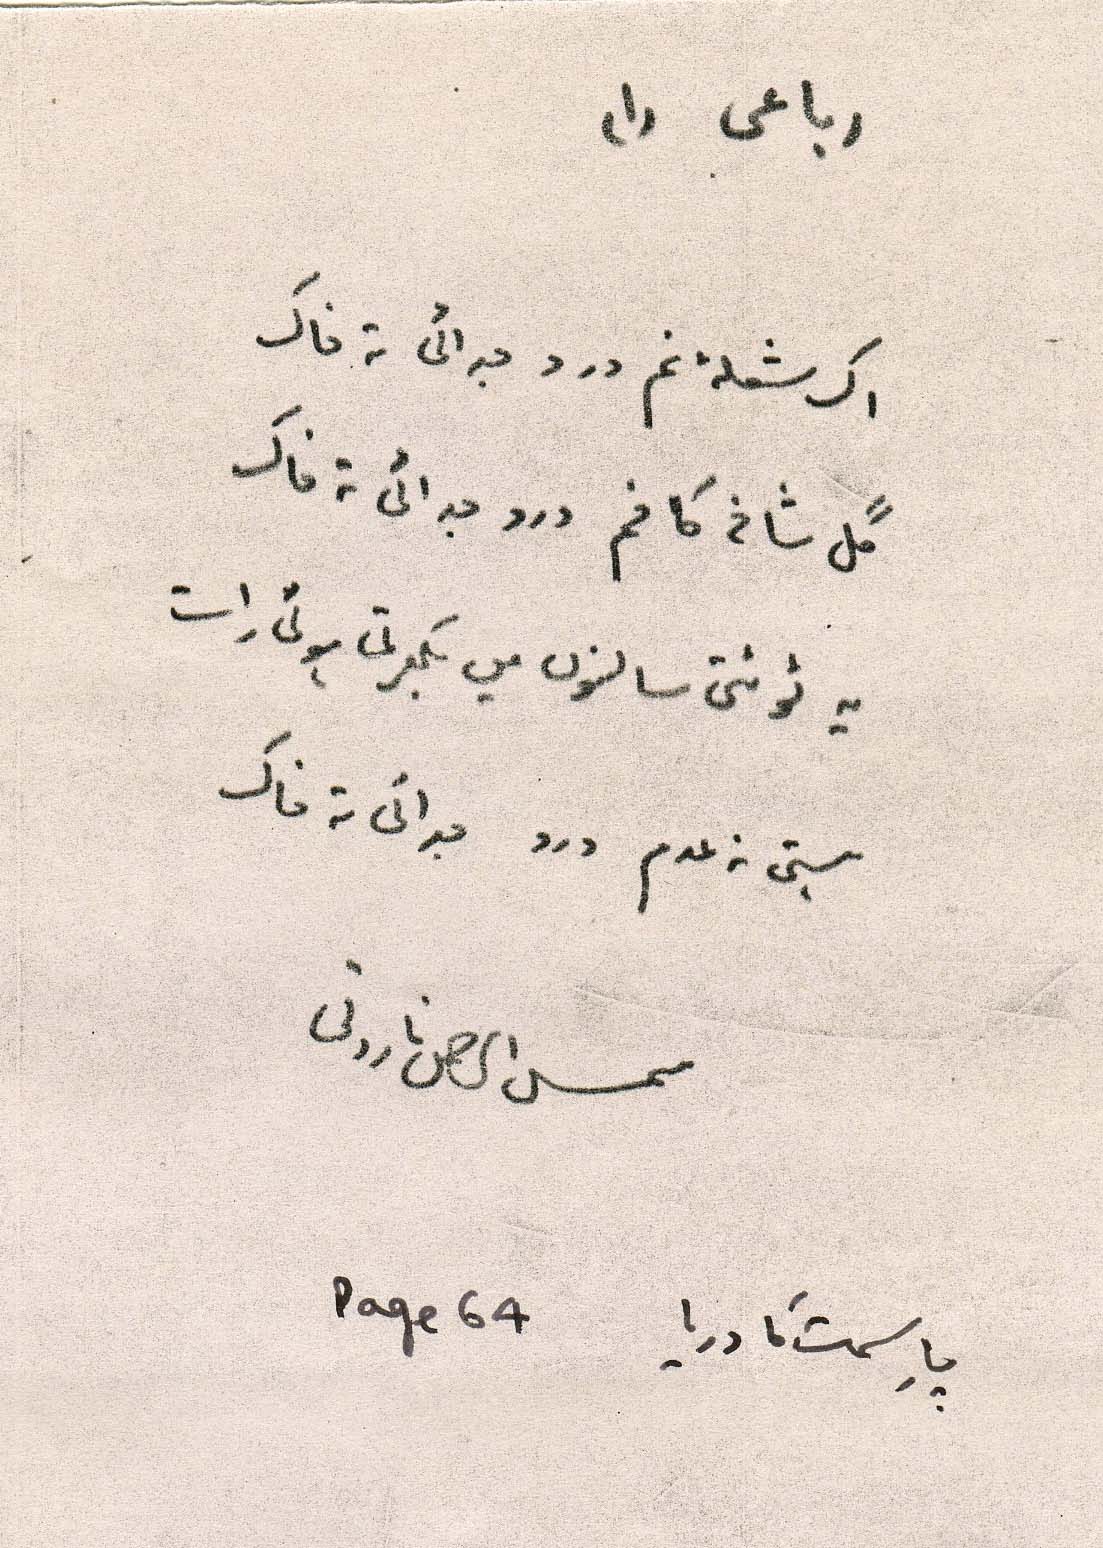 رباعی
اک شعلۂ غم درد جدائی تہ خاک
گل شاخ کا خم درد جدائی تہ خاک
یہ ٹوٹتی سانسوں میں بکھرتی ہوئی رات
ہستی نہ عدم درد جدائی تہ خاک
شمس الرحمن فاروقی
چار سمت کا دریا Page 64